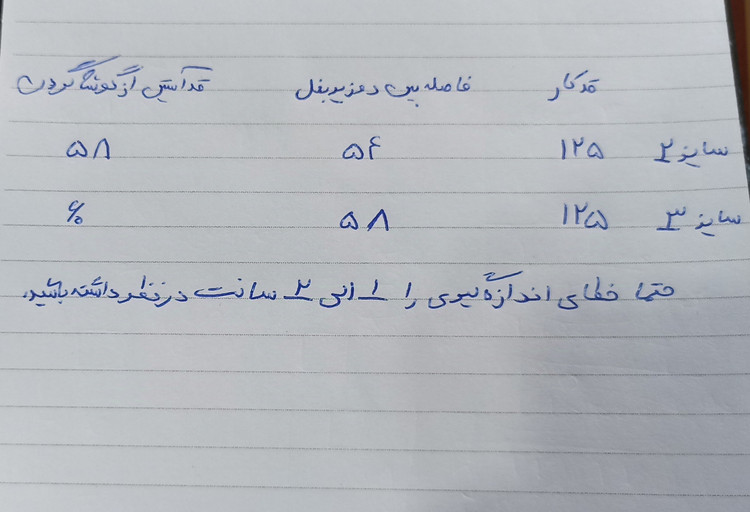 قد کار فاصله بین دو زیربغل قد آستین از گوشه گردن
سایز ۲ ۱۲۵ ۵۴ ۵۸
سایز ۳ ۱۲۵ ۵۸ ۶۰
حتما خطای اندازه گیری را ۱ الی ۲ سانت در نظر داشته باشید.